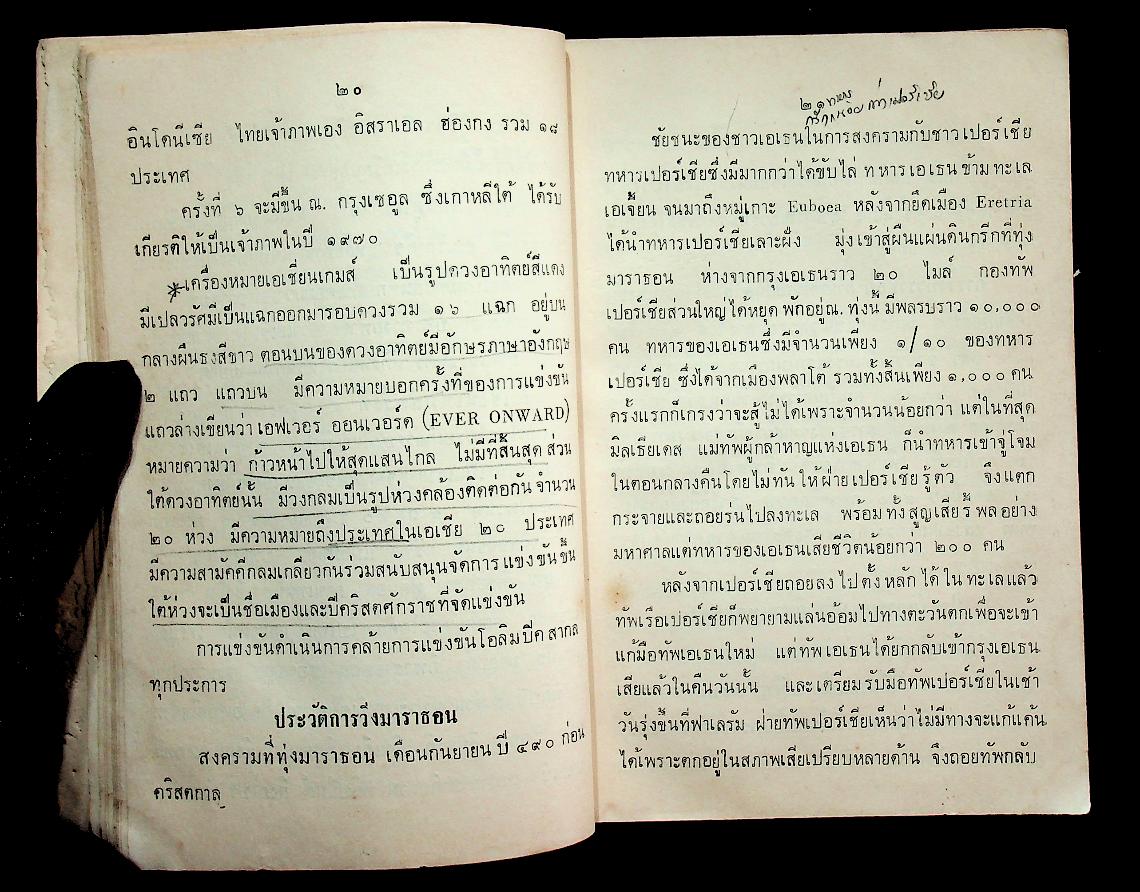 ๒๐
อินโดนีเซีย ไทยเจ้าภาพเอง อิสราเอล ฮ่องกง รวม ๑๘
ประเทศ
ครั้งที่ ๖ จะมีขึ้น ณ. กรุงเซอูล ซึ่งเกาหลีใต้ ได้รับ
เกียรติให้เป็นเจ้าภาพในปี ๑๙๗๐
*เครื่องหมายเอเชี่ยนเกมส์ เป็นรูปดวงอาทิตย์สีแดง
มีเปลวรัศมีเป็นแฉกออกมารอบดวงรวม ๑๖ แฉก อยู่บน
กลางผืนธงสีขาว ตอนบนของดวงอาทิตย์มีอักษรภาษาอังกฤษ
๒ แถว แถวบน มีความหมายบอกครั้งที่ของการแข่งขัน
แถวล่างเขียนว่า เอฟเวอร์ ออนเวอร์ด (EVER ONWARD)
หมายความว่า ก้าวหน้าไปให้สุดแสนไกล ไม่มีที่สิ้นสุด ส่วน
ใต้ดวงอาทิตย์นั้น มีวงกลมเป็นรูปห่วงคล้องติดต่อกัน จำนวน
๒๐ ห่วง มีความหมายถึงประเทศในเอเซีย ๒๐ ประเทศ
มีความสามัคคีกลมเกลียวกันร่วมสนับสนุนจัดการแข่งขันขึ้น
ใต้ห่วงจะเป็นชื่อเมืองและปีคริสตศักราชที่จัดแข่งขัน
การแข่งขันดำเนินการคล้ายการแข่งขันโอลิมปิค สากล
ทุกประการ
ประวัติการวิ่งมาราธอน
สงครามที่ทุ่งมาราธอน เดือนกันยายน ปี ๔๙๐ ก่อน
คริสตกาล
๒๑
ชัยชนะของชาวเอเธนในการสงครามกับชาวเปอร์เซีย
ทหารเปอร์เซียซึ่งมีมากกว่าได้ขับไล่ ทหารเอเธน ข้ามทะเล
เอเจี้ยน จนมาถึงหมู่เกาะ Euboea หลังจากยึดเมือง Eretria
ได้นำทหารเปอร์เซียเลาะฝั่ง มุ่งเข้าสู่ผืนแผ่นดินกรีกที่ทุ่ง
มาราธอน ห่างจากกรุงเอเธนราว ๒๐ ไมล์ กองทัพ
เปอร์เซียส่วนใหญ่ได้หยุดพักอยู่ณ. ทุ่งนี้ มีพลรบราว ๑๐,๐๐๐
คน ทหารของเอเธนซึ่งมีจำนวนเพียง ๑/๑๐ ของทหาร
เปอร์เซีย ซึ่งได้จากเมืองพลาโต้ รวมทั้งสิ้นเพียง ๑,๐๐๐ คน
ครั้งแรกก็เกรงว่าจะสู้ไม่ได้เพราะจำนวนน้อยกว่า แต่ในที่สุด
มิลเธียเดส แม่ทัพผู้กล้าหาญแห่งเอเธน ก็นำทหารเข้าจู่โจม
ในตอนกลางคืนโดยไม่ทันให้ฝ่ายเปอร์เซียรู้ตัว จึงแตก
กระจายและถอยร่นไปลงทะเล พร้อมทั้งสูญเสียรี้พลอย่าง
มหาศาลแต่ทหารของเอเธนเสียชีวิตน้อยกว่า ๒๐๐ คน
หลังจากเปอร์เซียถอยลงไปตั้งหลักได้ในทะเลแล้ว
ทัพเรือเปอร์เซียก็พยายามแล่นอ้อมไปทางตะวันตกเพื่อจะเข้า
แก้มือทัพเอเธนใหม่ แต่ทัพเอเธนได้ยกกลับเข้ากรุงเอเธน
เสียแล้วในคืนวันนั้น และเตรียมรับมือทัพเปอร์เซียในเช้า
วันรุ่งขึ้นที่ฟาเลรัม ฝ่ายทัพเปอร์เซียเห็นว่าไม่มีทางจะแก้แค้น
ได้เพราะตกอยู่ในสภาพเสียเปรียบหลายด้าน จึงถอยทัพกลับ